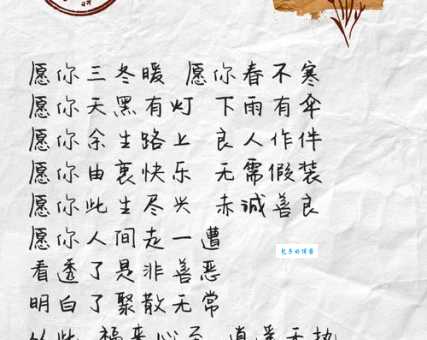 愿你三冬暖 愿你春不寒
愿你天黑有灯 下雨有伞
愿你余生路上 良人作伴
愿你由衷快乐 无需假装
愿你此生尽兴 赤诚善良
愿你人间走一遭
看透了是非善恶
明白了聚散无常
从此 福来心至